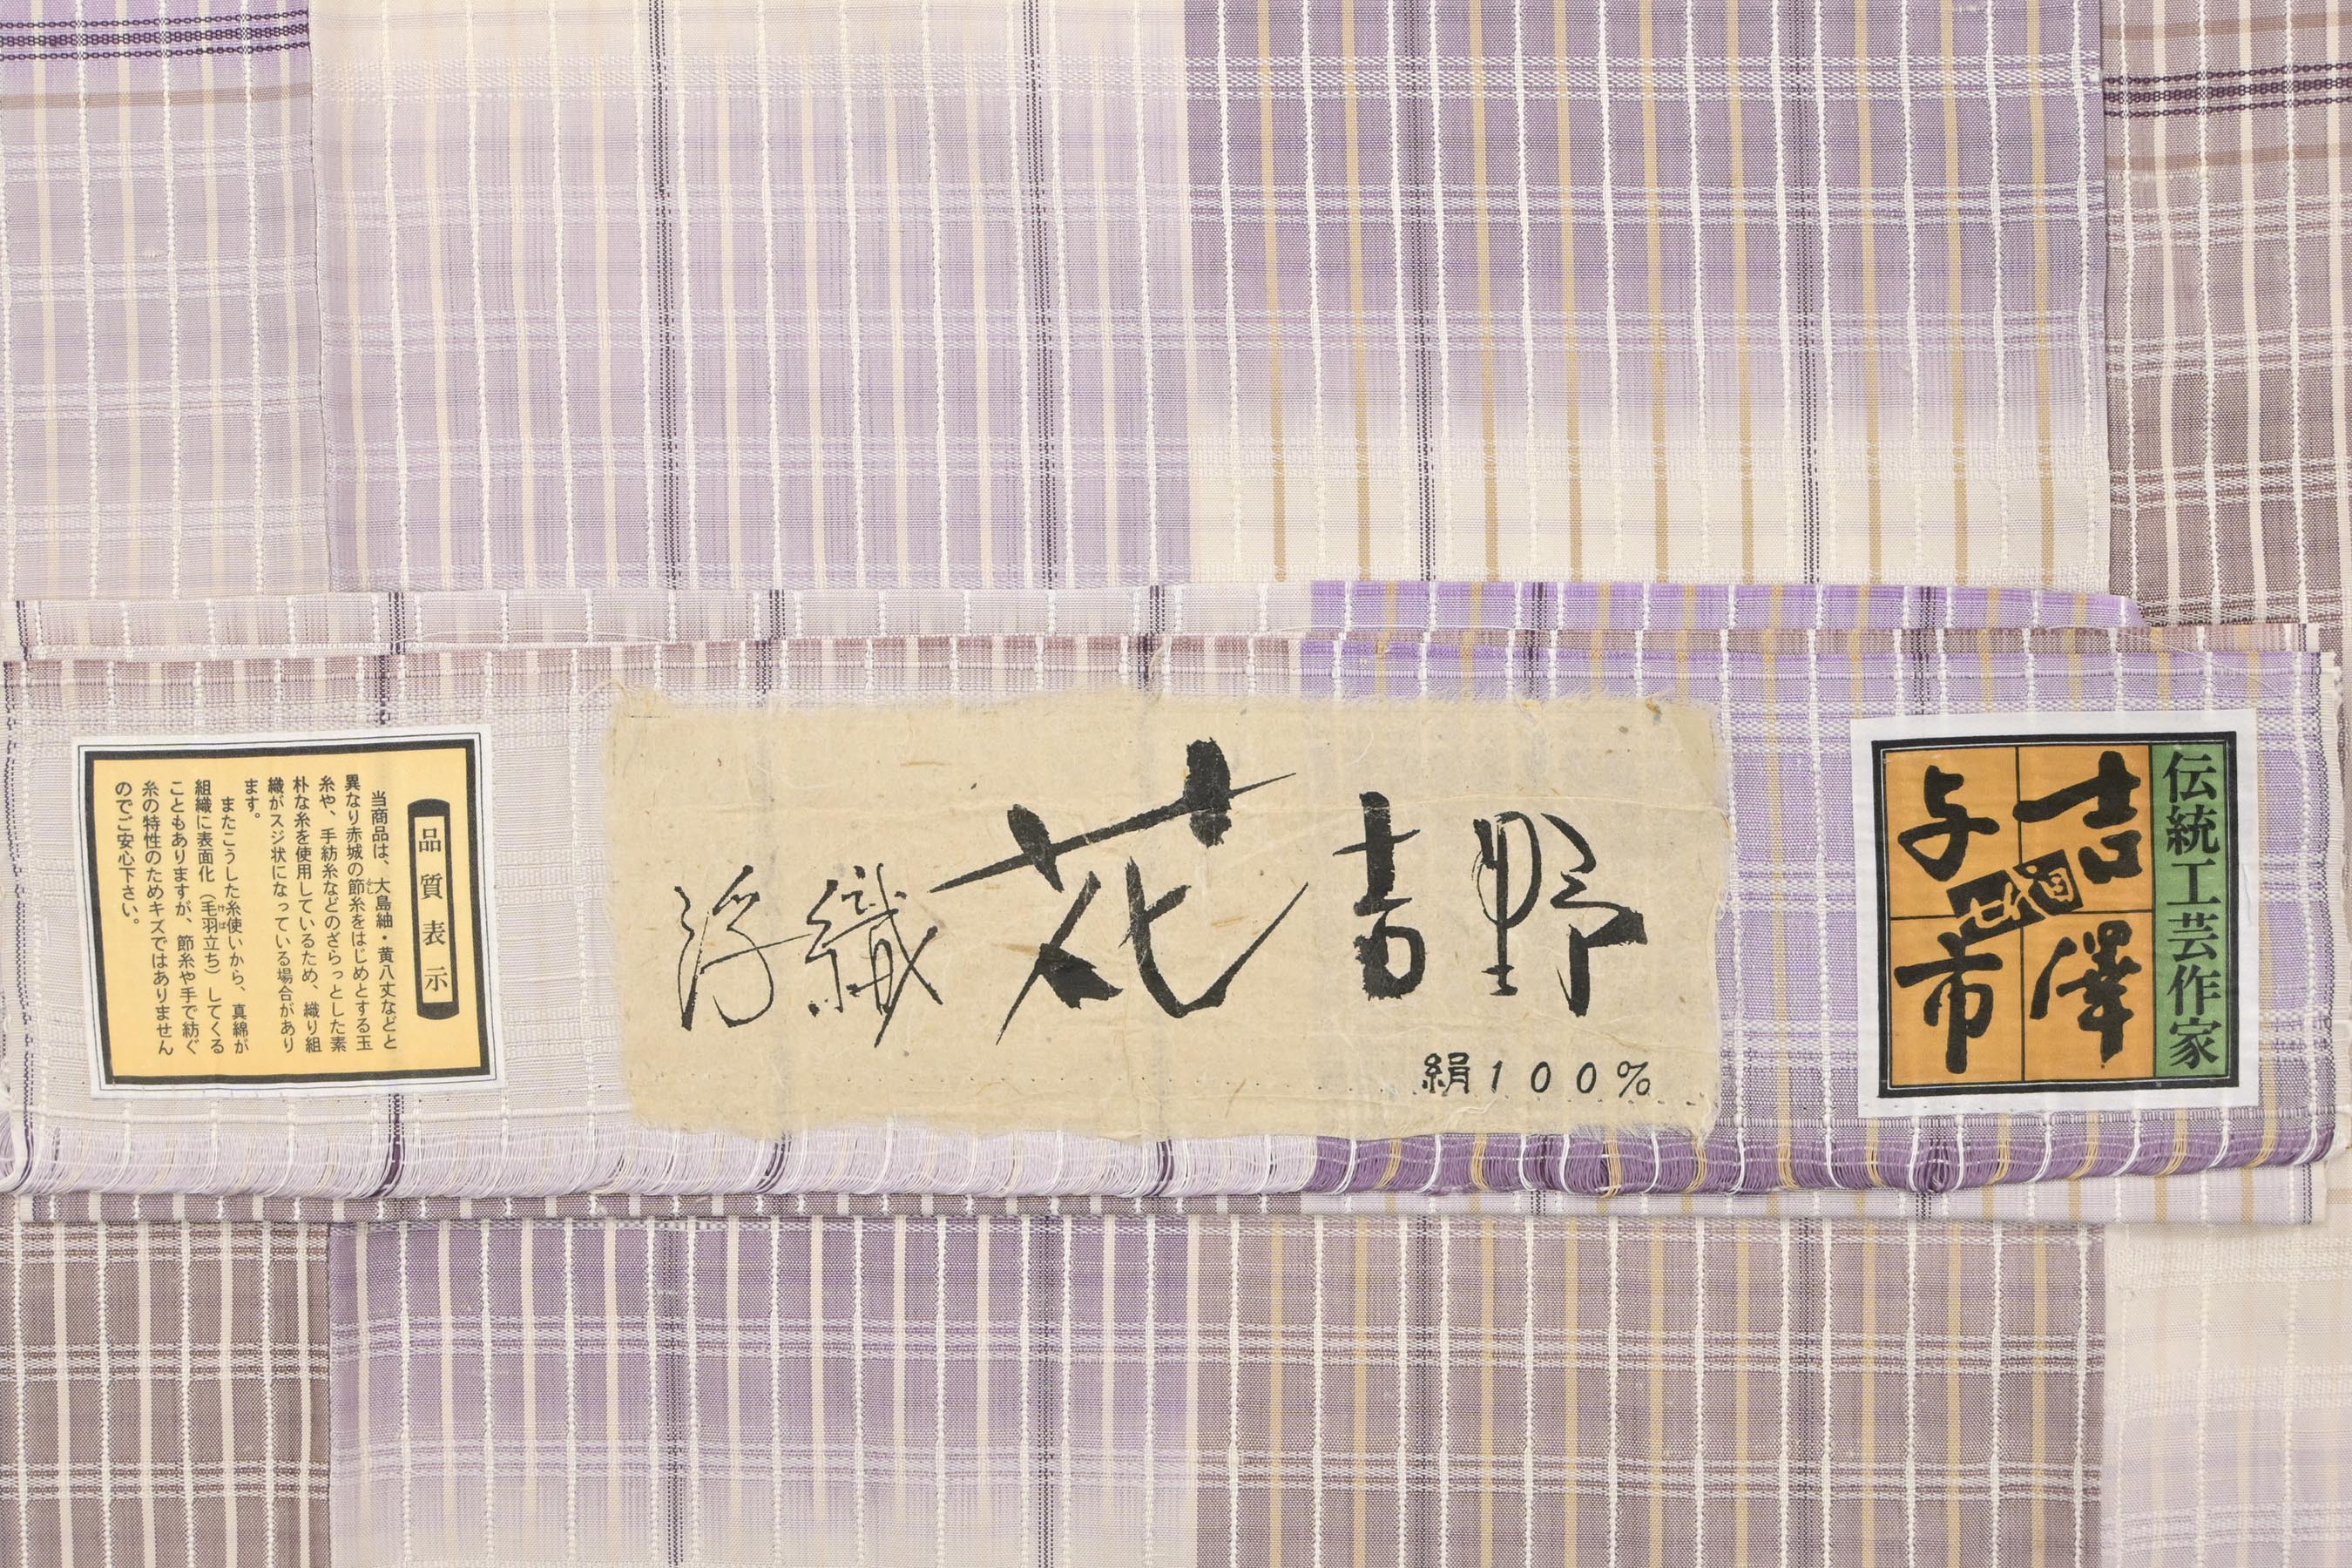 品質表示
当商品は、大島紬・黄八丈などと
異なり赤城の節糸をはじめとする玉
糸や、手紡糸などのざらっとした素
朴な糸を使用しているため、織り組
織がスジ状になっている場合があり
ます。
またこうした糸使いから、真綿が
組織に表面化（毛羽立ち）してくる
こともありますが、節糸や手で紡ぐ
糸の特性のためキズではありません
のでご安心下さい。
浮織花吉野
絹100%
伝統工芸作家
吉澤
与市